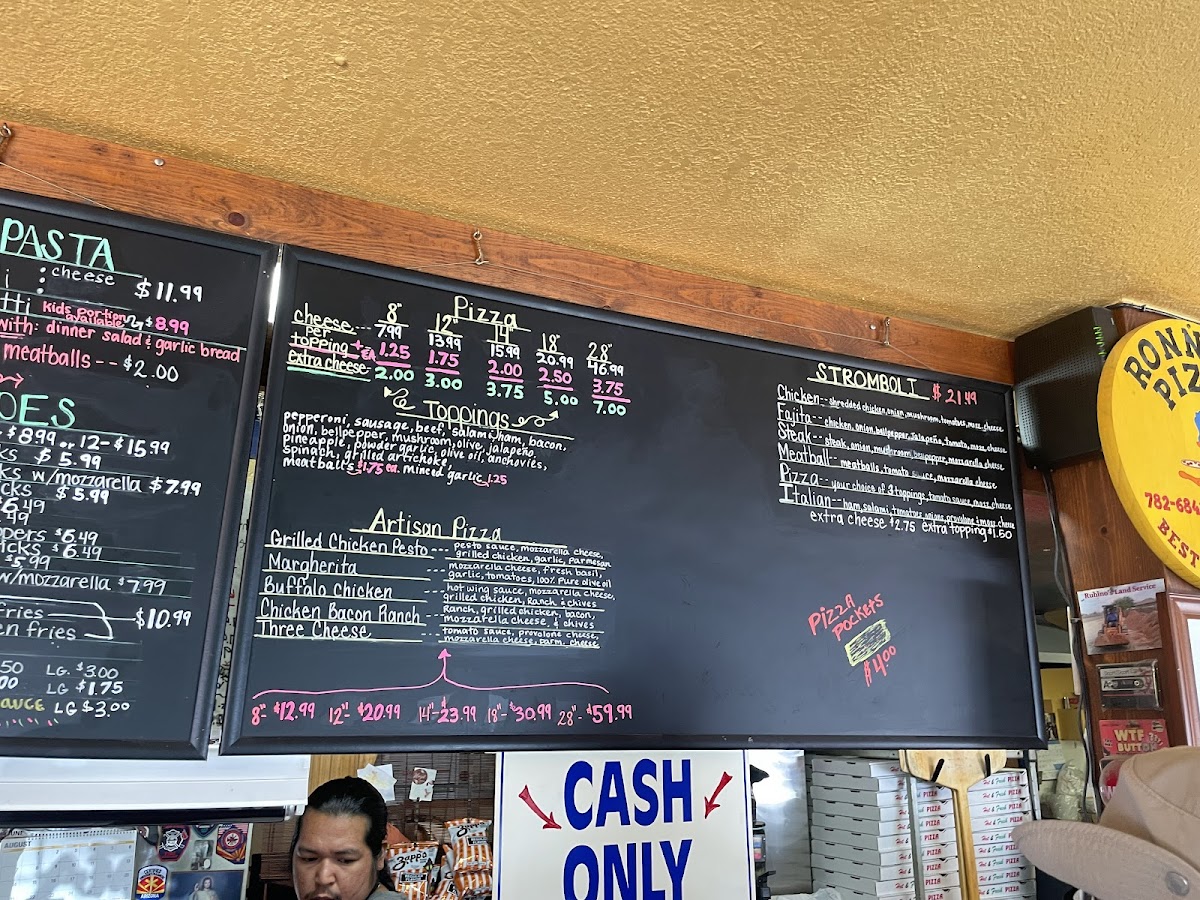 PASTA
cheese
$11.99
tti kids portion available $8.99
with: dinner salad & garlic bread
meatballs --- $2.00
OES
$8.99 or 12-$15.99
ks $5.99
ks w/mozzarella $7.99
cks $5.99
$6.49
.49
ppers $6.49
icks $6.49
$5.99
w/mozzarella $7.99
fries
en fries
$10.99
50 LG. $3.00
00 LG $1.75
AUCE LG $3.00
Pizza
8" 12" 14 18" 28"
cheese 7.99 13.99 15.99 20.99 46.99
per topping + EA 1.25 1.75 2.00 2.50 3.75
extra cheese 2.00 3.00 3.75 5.00 7.00
Toppings
pepperoni, sausage, beef, salami, ham, bacon,
onion, bellpepper, mushroom, olive, jalapeño,
pineapple, powder garlic, olive oil, anchovies,
spinach, grilled artichoke,
meatballs $1.75 ea. minced garlic 1.25
Artisan Pizza
Grilled Chicken Pesto --- pesto sauce, mozzarella cheese,
grilled chicken, garlic, parmesan
Margherita --- mozzarella cheese, fresh basil,
garlic, tomatoes, 100% pure olive oil
Buffalo Chicken --- hot wing sauce, mozzarella cheese,
grilled chicken, Ranch & chives
Chicken Bacon Ranch --- Ranch, grilled chicken, bacon,
mozzarella cheese, & chives
Three Cheese --- tomato sauce, provolone cheese,
mozzarella cheese, parm. cheese
8" $12.99 12"- $20.99 14"- $23.99 18"- $30.99 28"- $59.99
STROMBOLI $21.49
Chicken -- shredded chicken, onion, mushroom, tomatoes, mozz. cheese
Fajita -- chicken, onion, bellpepper, Jalapeño, tomato, mozz. cheese
Steak -- steak, onion, mushroom, bellpepper, mozzarella cheese
Meatball -- meatballs, tomato sauce, mozzarella cheese
Pizza -- your choice of 3 toppings, tomato sauce, mozz. cheese
Italian -- ham, salami, tomatoes, onions, provolone & mozz. cheese
extra cheese $2.75 extra topping $1.50
PIZZA
POCKETS
$4.00
CASH
ONLY
RONN
PIZ
782-684
BEST
Rubino's Land Service
WTF
BUTTON
Zapp's
AUGUST
Hot & Fresh PIZZA